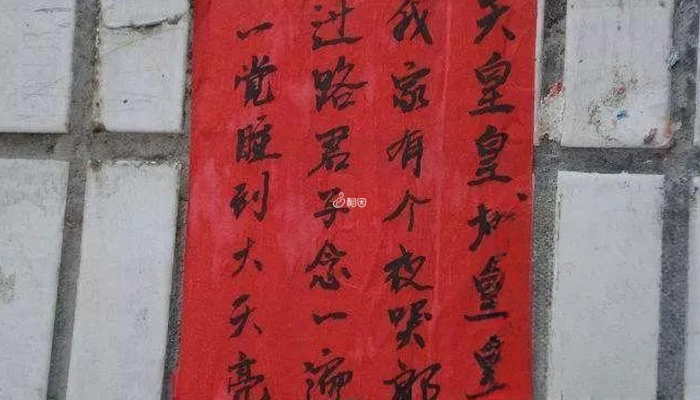 天皇皇地皇皇
我家有个夜哭郎
过路君子念一遍
一觉睡到大天亮